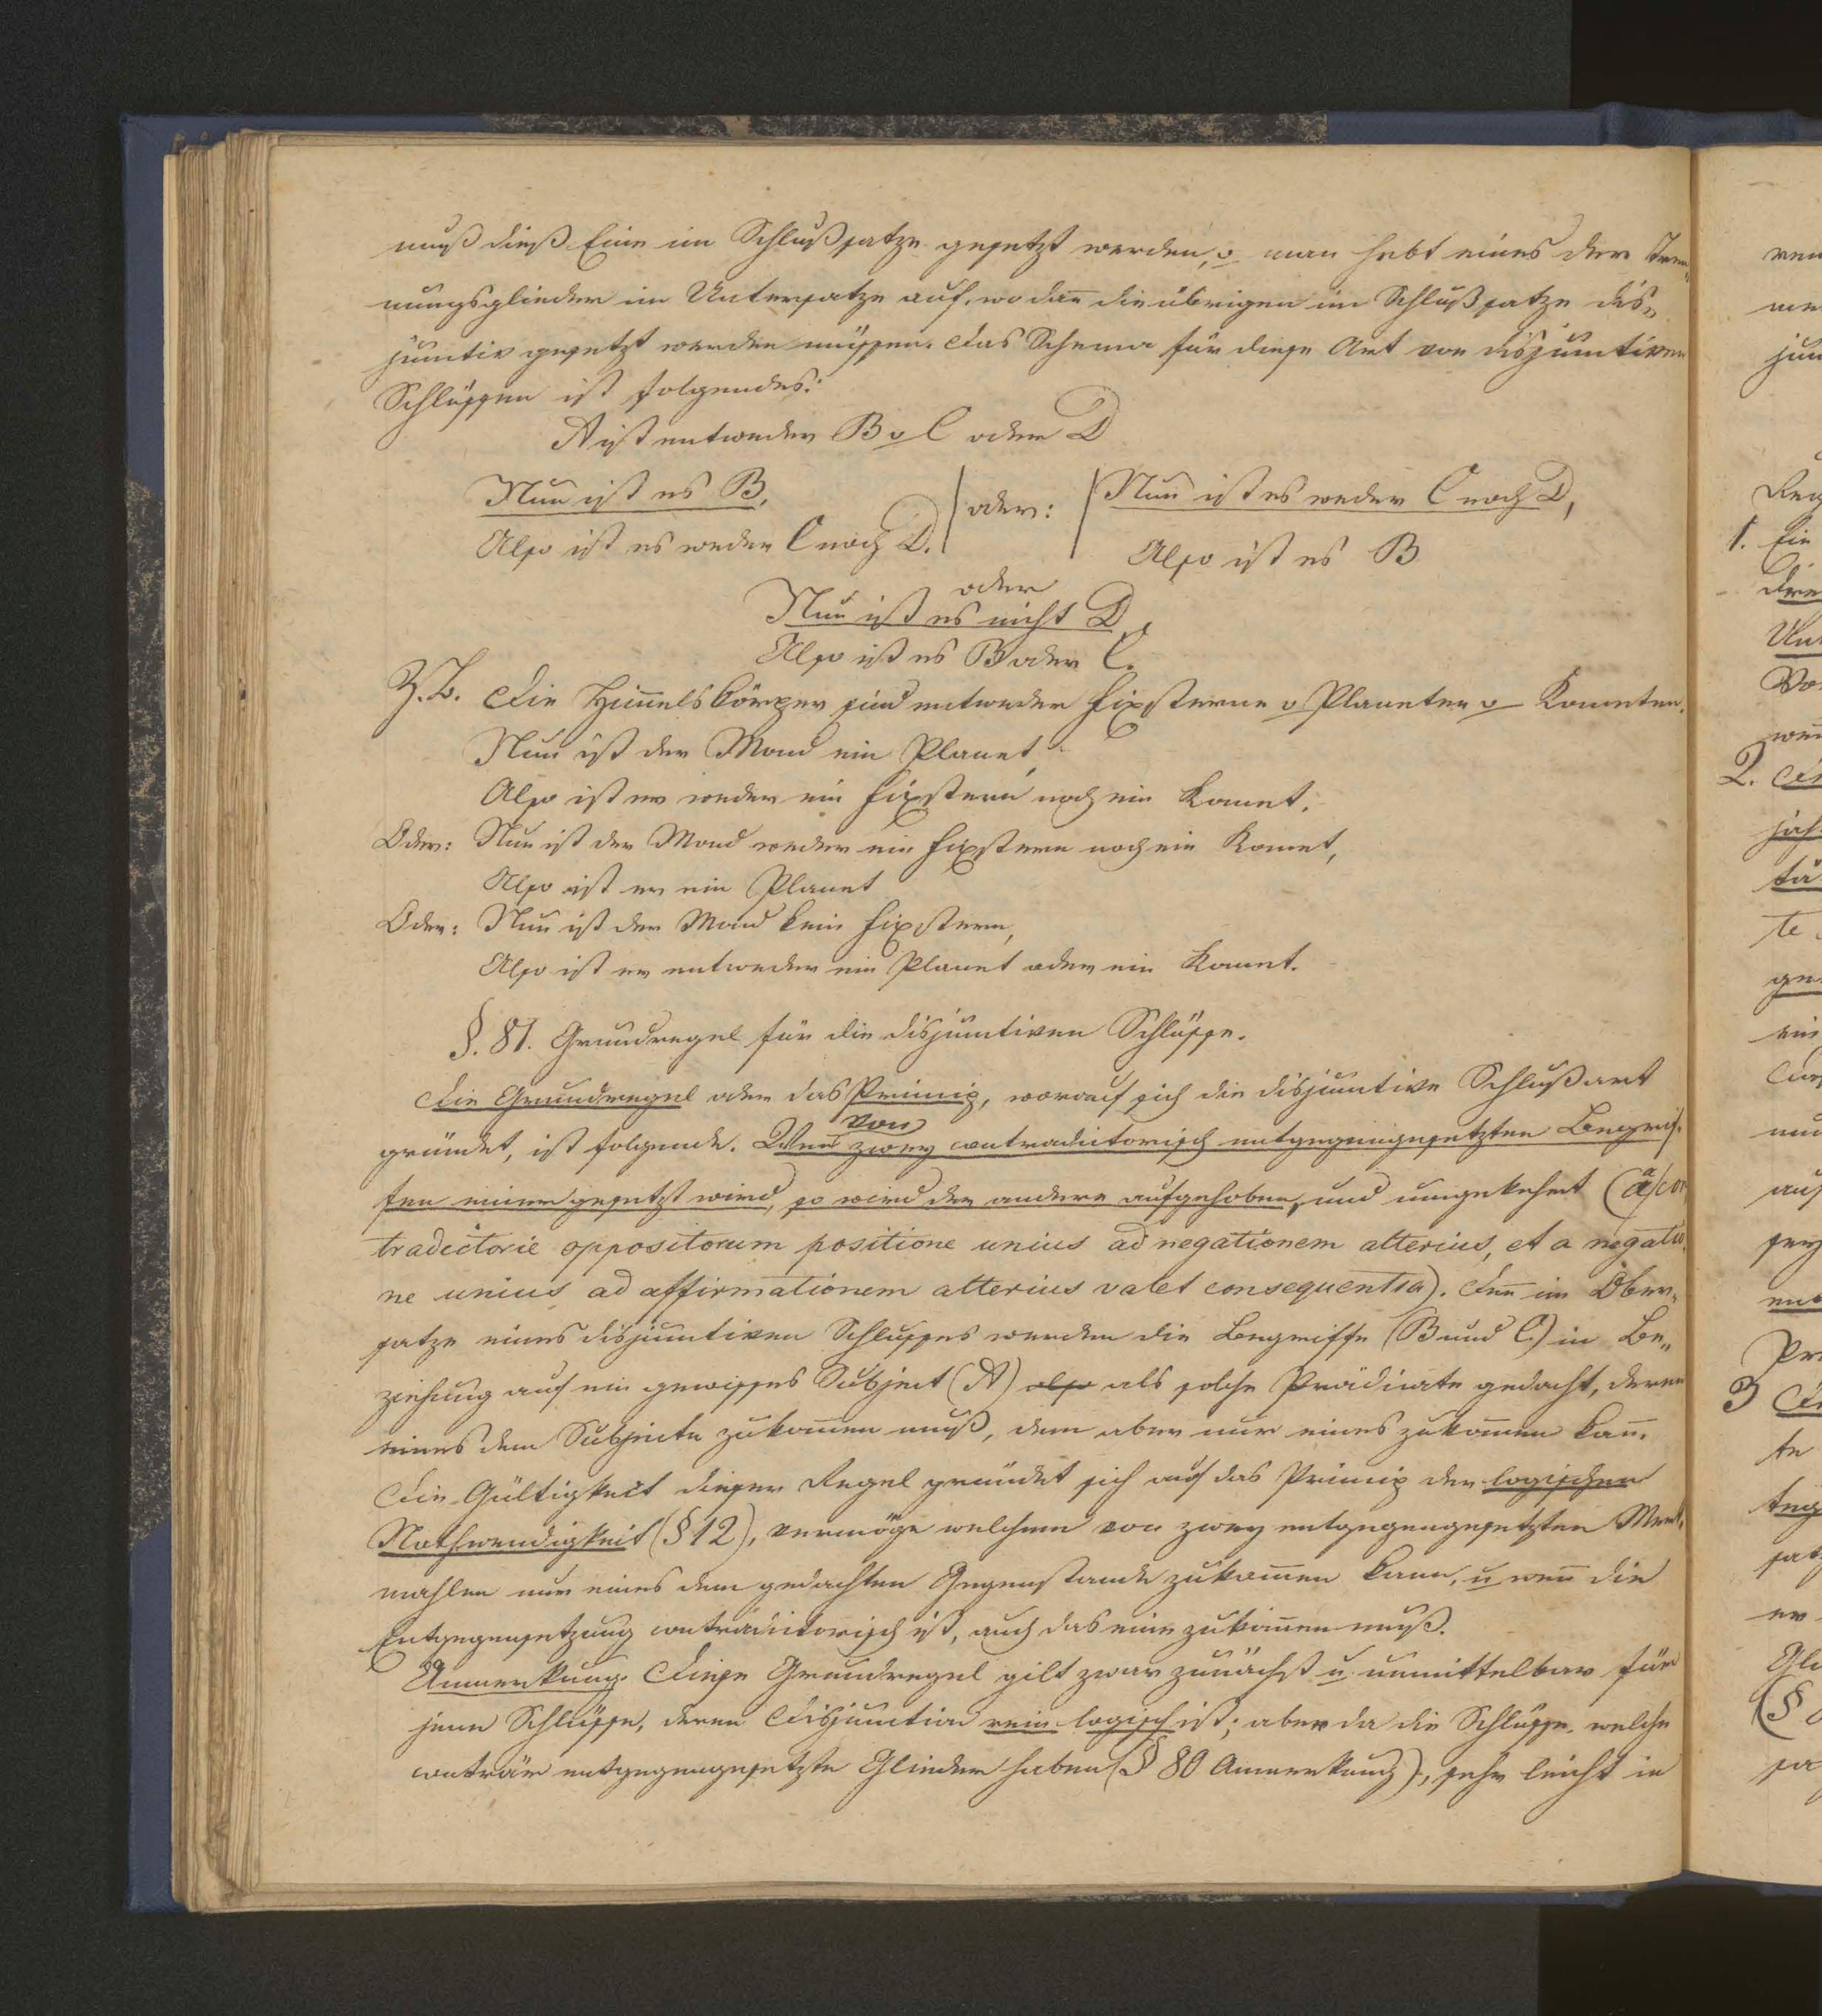 muß dieß Eine im Schlußsatze gesetzt werden, o man hebt eines der Tren-
nungsglieder im Untersatze auf, wo dañ die übrigen im Schlußsatze dis-
junctiv gesetzt werden müssen. Das Schema für diese Art von disjunctiven
Schlüssen ist folgendes:
A ist entweder B o C oder D
Nun ist es B, | oder: | Nun ist es weder C noch D,
Also ist es weder C noch D. Also ist es B
oder
Nun ist es nicht D,
Also ist es B oder C.
Z.B. Die Him̃elskörper sind entweder Fixsterne o Planeten o Kometen.
Nun ist der Mond ein Planet,
Also ist er weder ein Fixstern noch ein Komet.
Oder: Nun ist der Mond weder ein Fixstern noch ein Komet,
Also ist er ein Planet
Oder: Nun ist der Mond kein Fixstern,
Also ist er entweder ein Planet oder ein Komet.
§. 81. Grundregel für die disjunctiven Schlüsse.
Die Grundregel oder das Princip, worauf sich die disjunctive Schlußart
gründet, ist folgende. Weñ von zwey contradictorisch entgegengesetzten Begrif-
fen einer gesetzt wird, so wird der andere aufgehoben, und umgekehrt (a con
tradictorie oppositorum positione unius ad negationem alterius, et a negatio
ne unius ad affirmationem alterius valet consequentia). Deñ im Ober-
satze eines disjunctiven Schlusses werden die Begriffe (B und C) in Be-
ziehung auf ein gewisses Subject (A) also als solche Prädicate gedacht, deren
eines dem Subjecte zukom̃en muß, dem aber nur eines zukom̃en kañ.
Die Gültigkeit dieser Regel gründet sich auf das Princip der logischen
Nothwendigkeit (§ 12), vermöge welchem von zwey entgegengesetzten Merk-
mahlen nur eines dem gedachten Gegenstande zukom̃en kann, u weñ die
Entgegensetzung contradictorisch ist, auch das eine zukom̃en muß.
Anmerkung. Diese Grundregel gilt zwar zunächst u. unmittelbar für
jene Schlüsse, deren Disjunction rein logisch ist; aber da die Schlüsse, welche
conträr entgegengesetzte Glieder haben (§ 80 Anmerkung), sehr leicht in